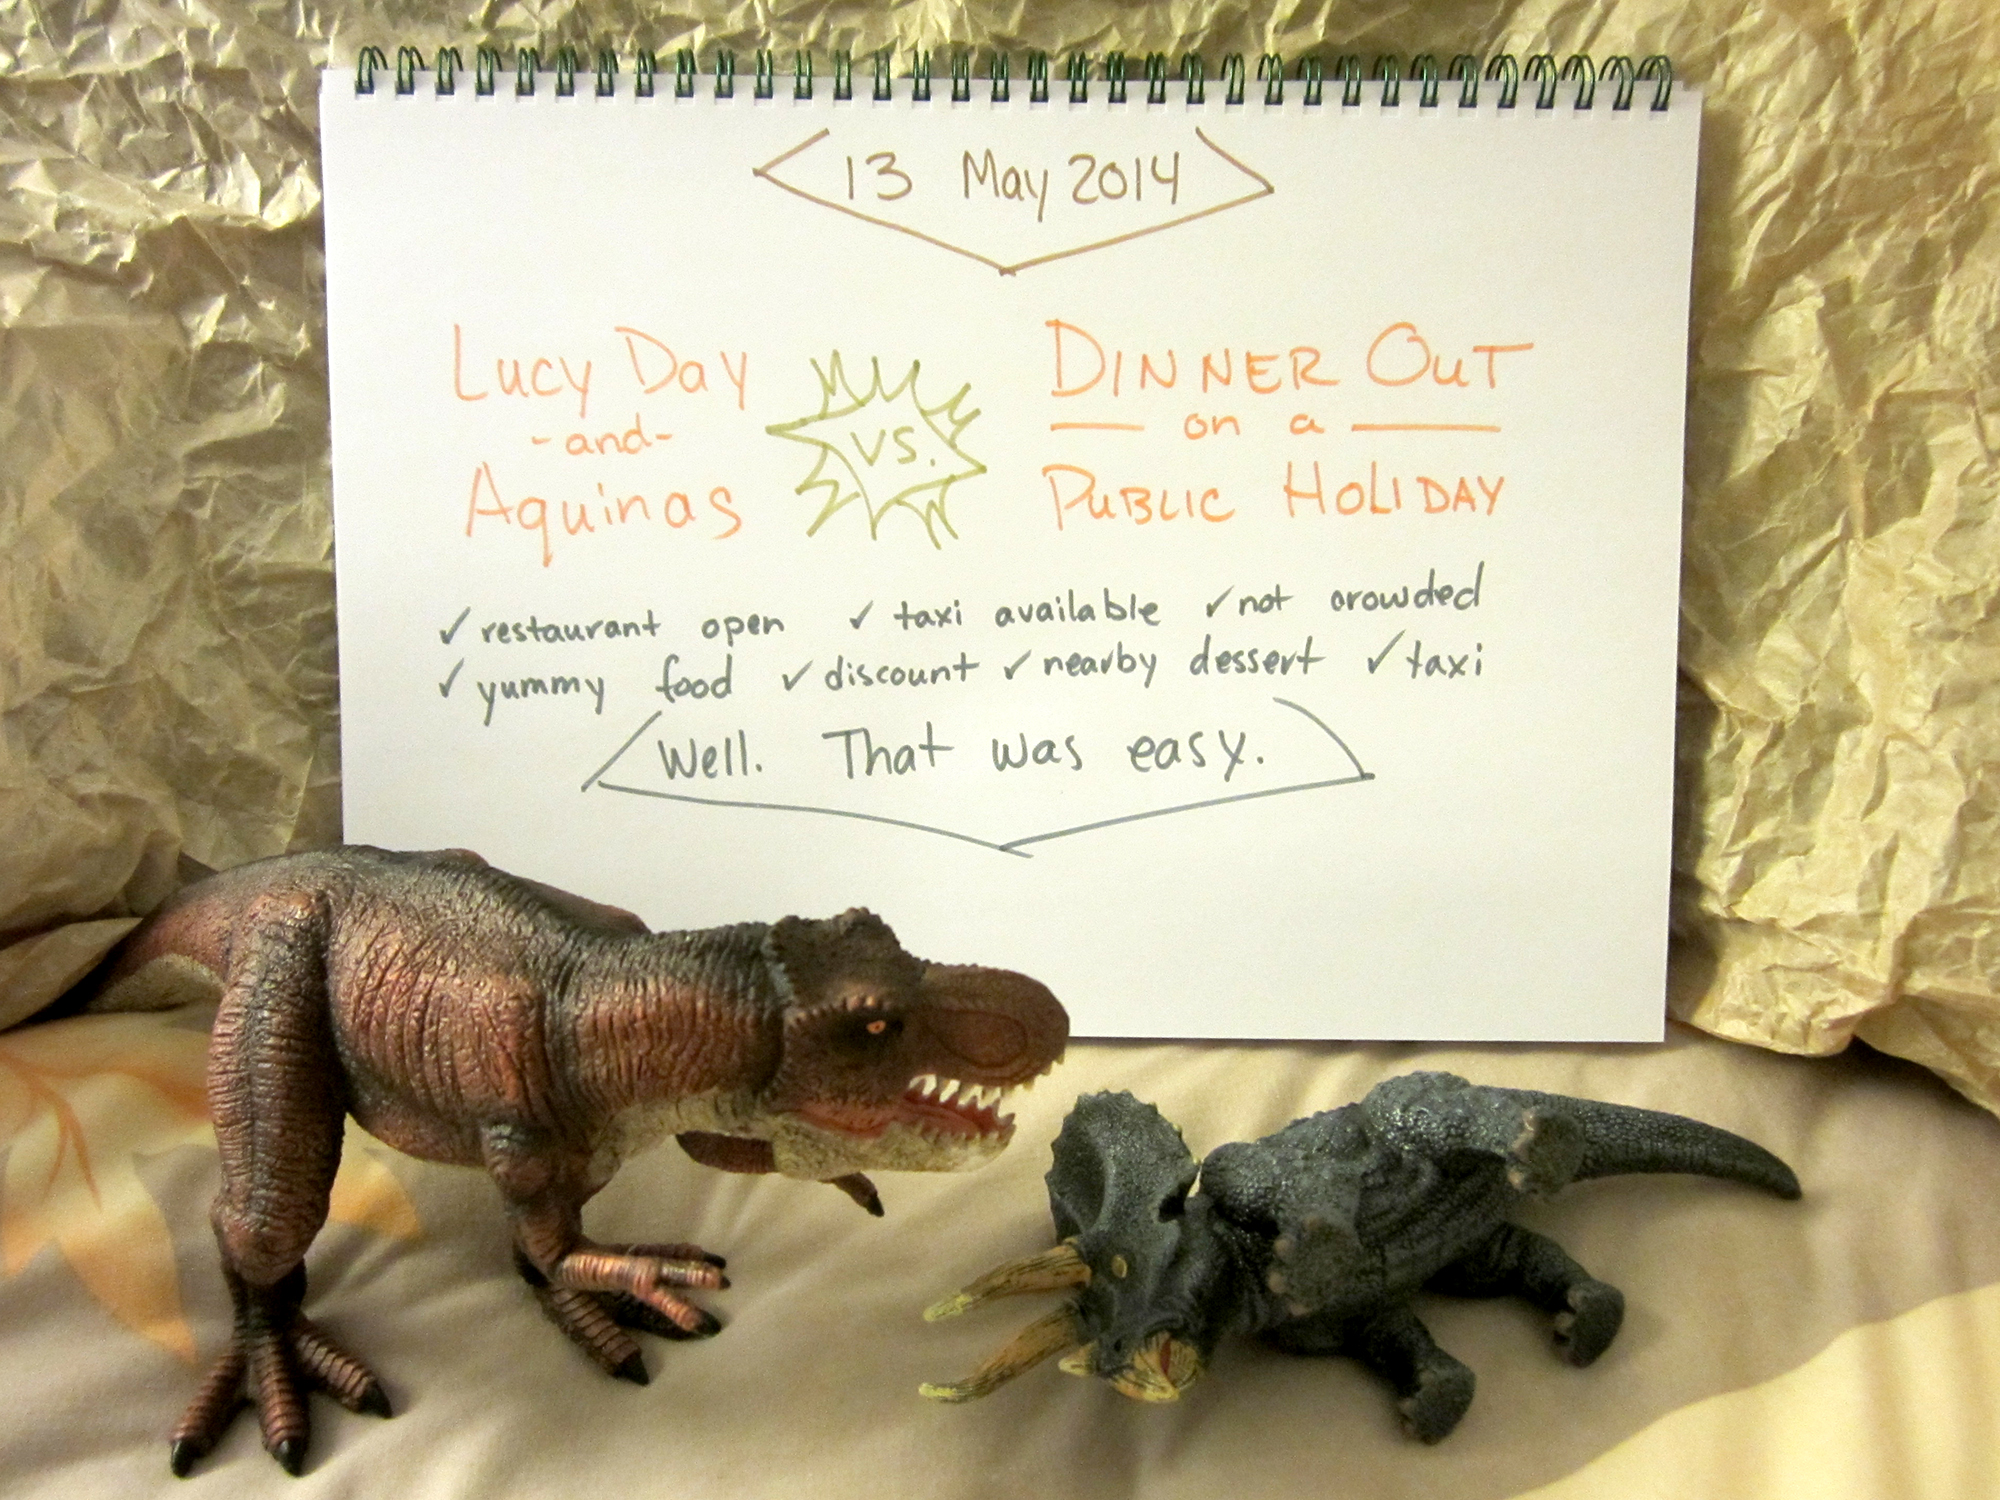 13 May 2014
Lucy Day
-and-
Aquinas
vs.
DINNER OUT
on a
PUBLIC HOLIDAY
✓ restaurant open ✓ taxi available ✓ not crowded
✓ yummy food ✓ discount ✓ nearby dessert ✓ taxi
Well. That was easy.